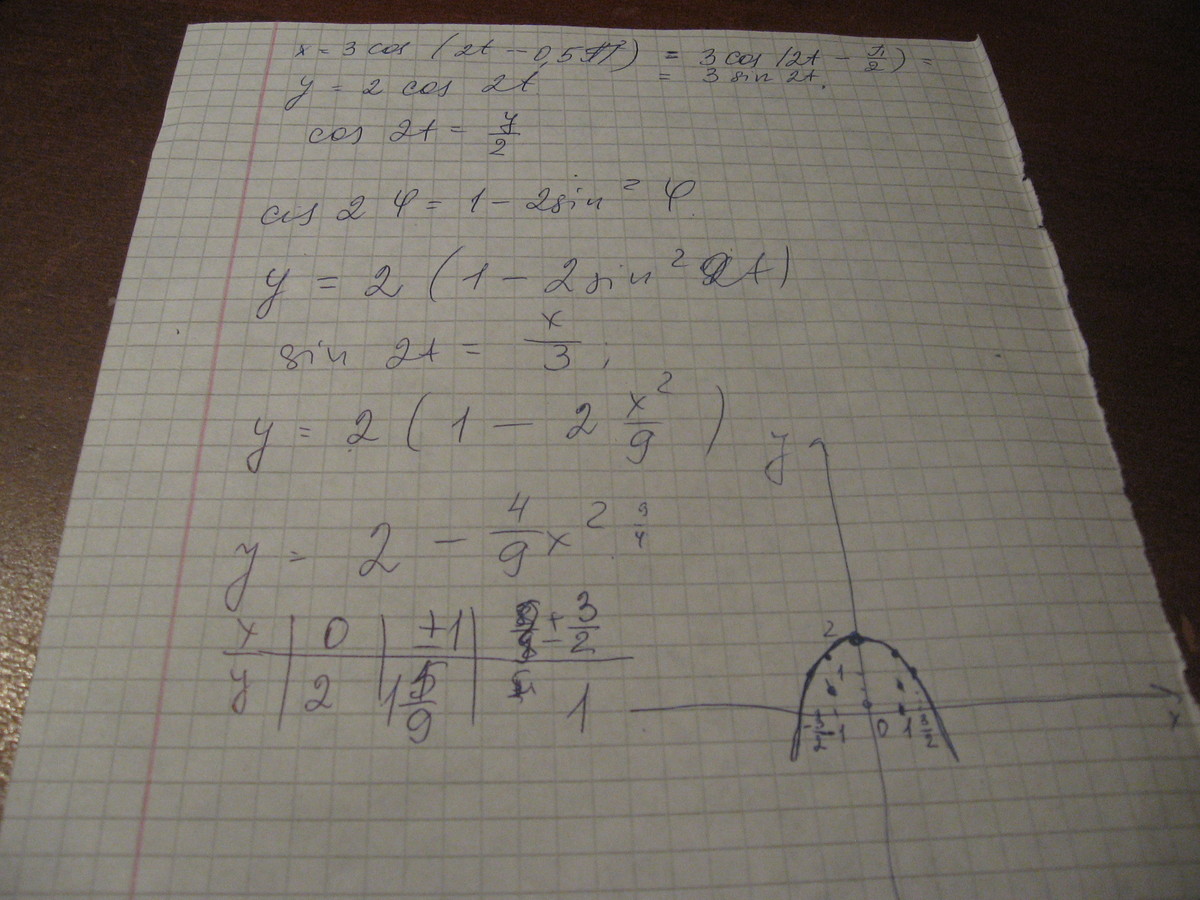 x = 3 cos (2t - 0,5π) = 3 cos (2t - π/2) =
= 3 sin 2t.
y = 2 cos 2t
cos 2t = y/2
cos 2φ = 1 - 2sin² φ.
y = 2 (1 - 2 sin² 2t)
sin 2t = x/3 ;
y = 2 (1 - 2 x²/9)
y = 2 - 4/9 x². 9/4
x | 0 | ±1 | ± 3/2
y | 2 | 1 5/9 | 1
y
2
1
-3/2 -1 0 1 3/2 x